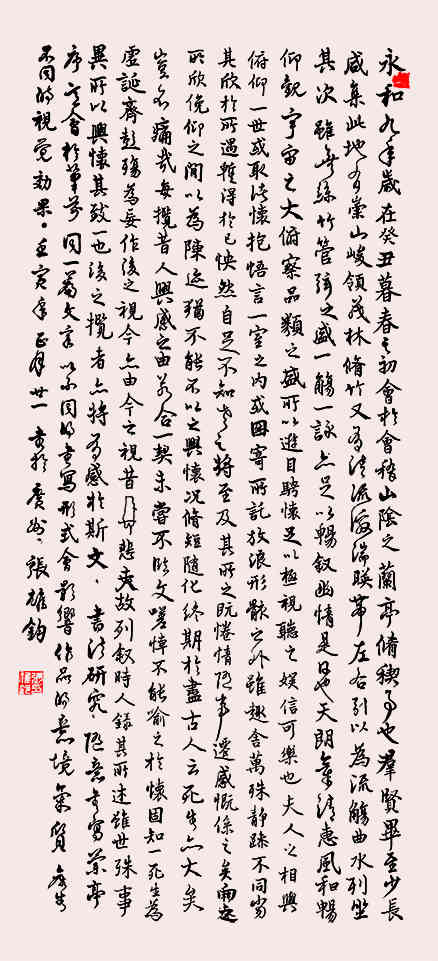 永和九年歲在癸丑暮春之初會於會稽山陰之蘭亭脩禊事也羣賢畢至少長
咸集此地有崇山峻領茂林脩竹又有清流激湍暎帶左右引以為流觴曲水列坐
其次雖無絲竹管弦之盛一觴一詠亦足以暢叙幽情是日也天朗氣清惠風和暢
仰觀宇宙之大俯察品類之盛所以遊目騁懷足以極視聽之娛信可樂也夫人之相與
俯仰一世或取諸懷抱悟言一室之內或因寄所託放浪形骸之外雖趣舍萬殊靜躁不同當
其欣於所遇暫得於己怏然自足不知老之將至及其所之既惓情隨事遷感慨係之矣向之
所欣俛仰之間以為陳迹猶不能不以之興懷況脩短隨化終期於盡古人云死生亦大矣
豈不痛哉每攬昔人興感之由若合一契未嘗不臨文嗟悼不能喻之於懷固知一死生為
虛誕齊彭殤為妄作後之視今亦由今之視昔悲夫故列叙時人錄其所述雖世殊事
異所以興懷其致一也後之攬者亦將有感於斯文、書法研究、隨意書寫蘭亭
序同一篇文章以不同的書寫形式會影響作品的意境氣質產生
不同的視覺效果。壬寅年正月廿一書於廣州、張雄鈞